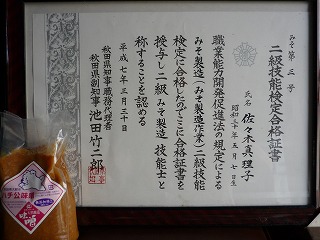 みそ第三号
二級技能検定合格証書
氏名 佐々木真理子
昭和三十年五月七日生
職業能力開発促進法の規定による
みそ製造(みそ製造作業)二級技能
検定に合格したのでここに合格証書を
授与し二級みそ製造技能士と
称することを認める
平成七年三月三十日
秋田県知事職務代理者
秋田県副知事 池田竹二郎
ハチ公味噌
味噌